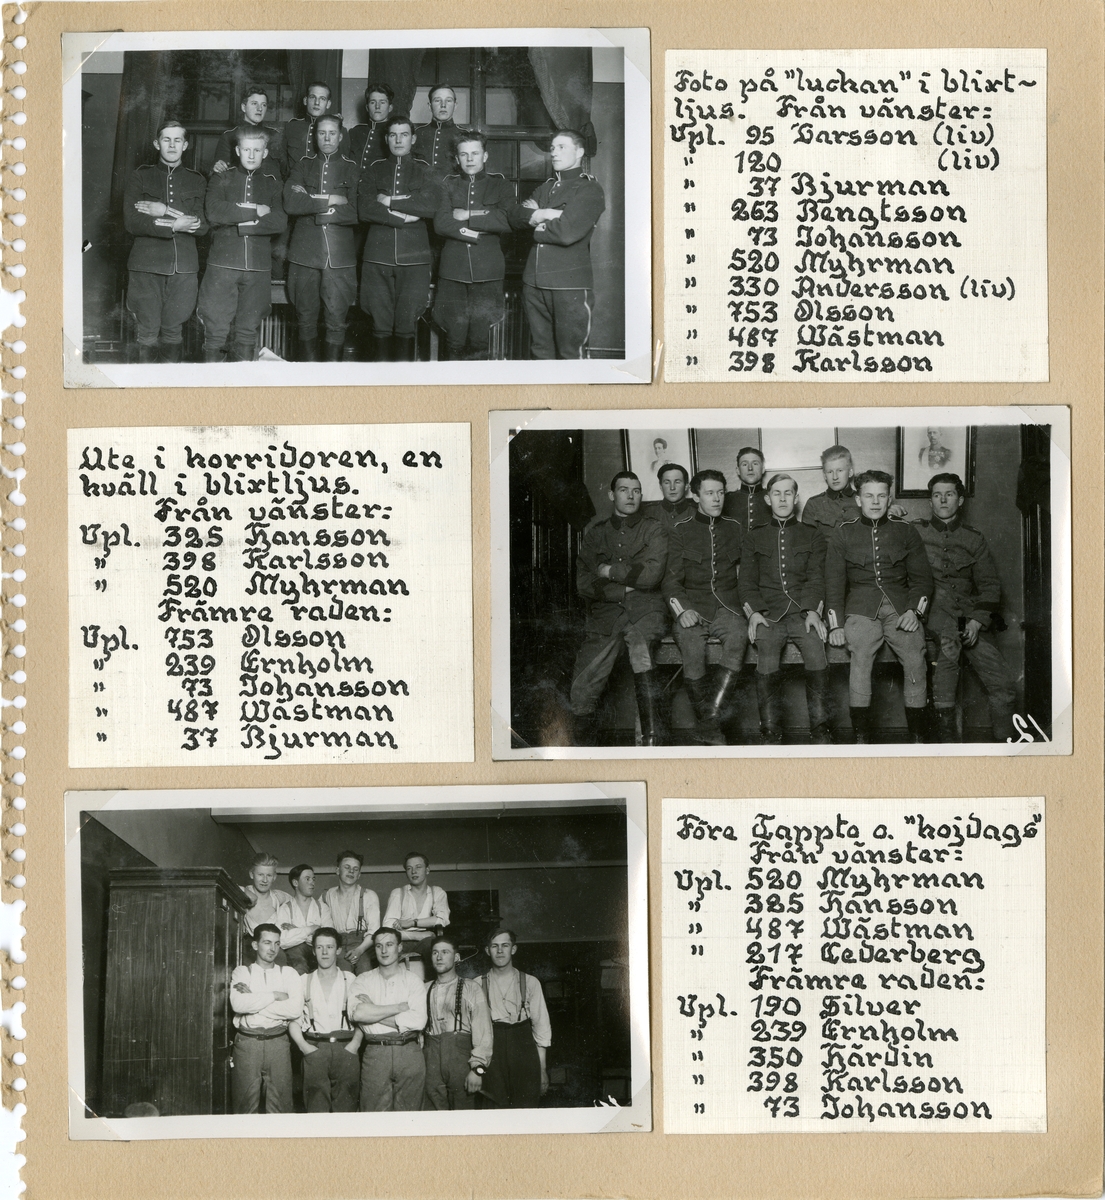 Foto på "luckan" i blixt-
ljus. Från vänster:
Vpl. 95 Larsson (liv)
" 120 (liv)
" 37 Bjurman
" 263 Bengtsson
" 73 Johansson
" 520 Myhrman
" 330 Andersson (liv)
" 753 Olsson
" 487 Wästman
" 398 Karlsson
Ute i korridoren, en
kväll i blixtljus.
Från vänster:
Vpl. 325 Hansson
" 398 Karlsson
" 520 Myhrman
Främre raden:
Vpl. 753 Olsson
" 239 Ernholm
" 73 Johansson
" 487 Wästman
" 37 Bjurman
Före Tappto o. "kojdags"
Från vänster:
Vpl. 520 Myhrman
" 325 Hansson
" 487 Wästman
" 217 Cederberg
Främre raden:
Vpl. 190 Silver
" 239 Ernholm
" 350 Härdin
" 398 Karlsson
" 73 Johansson